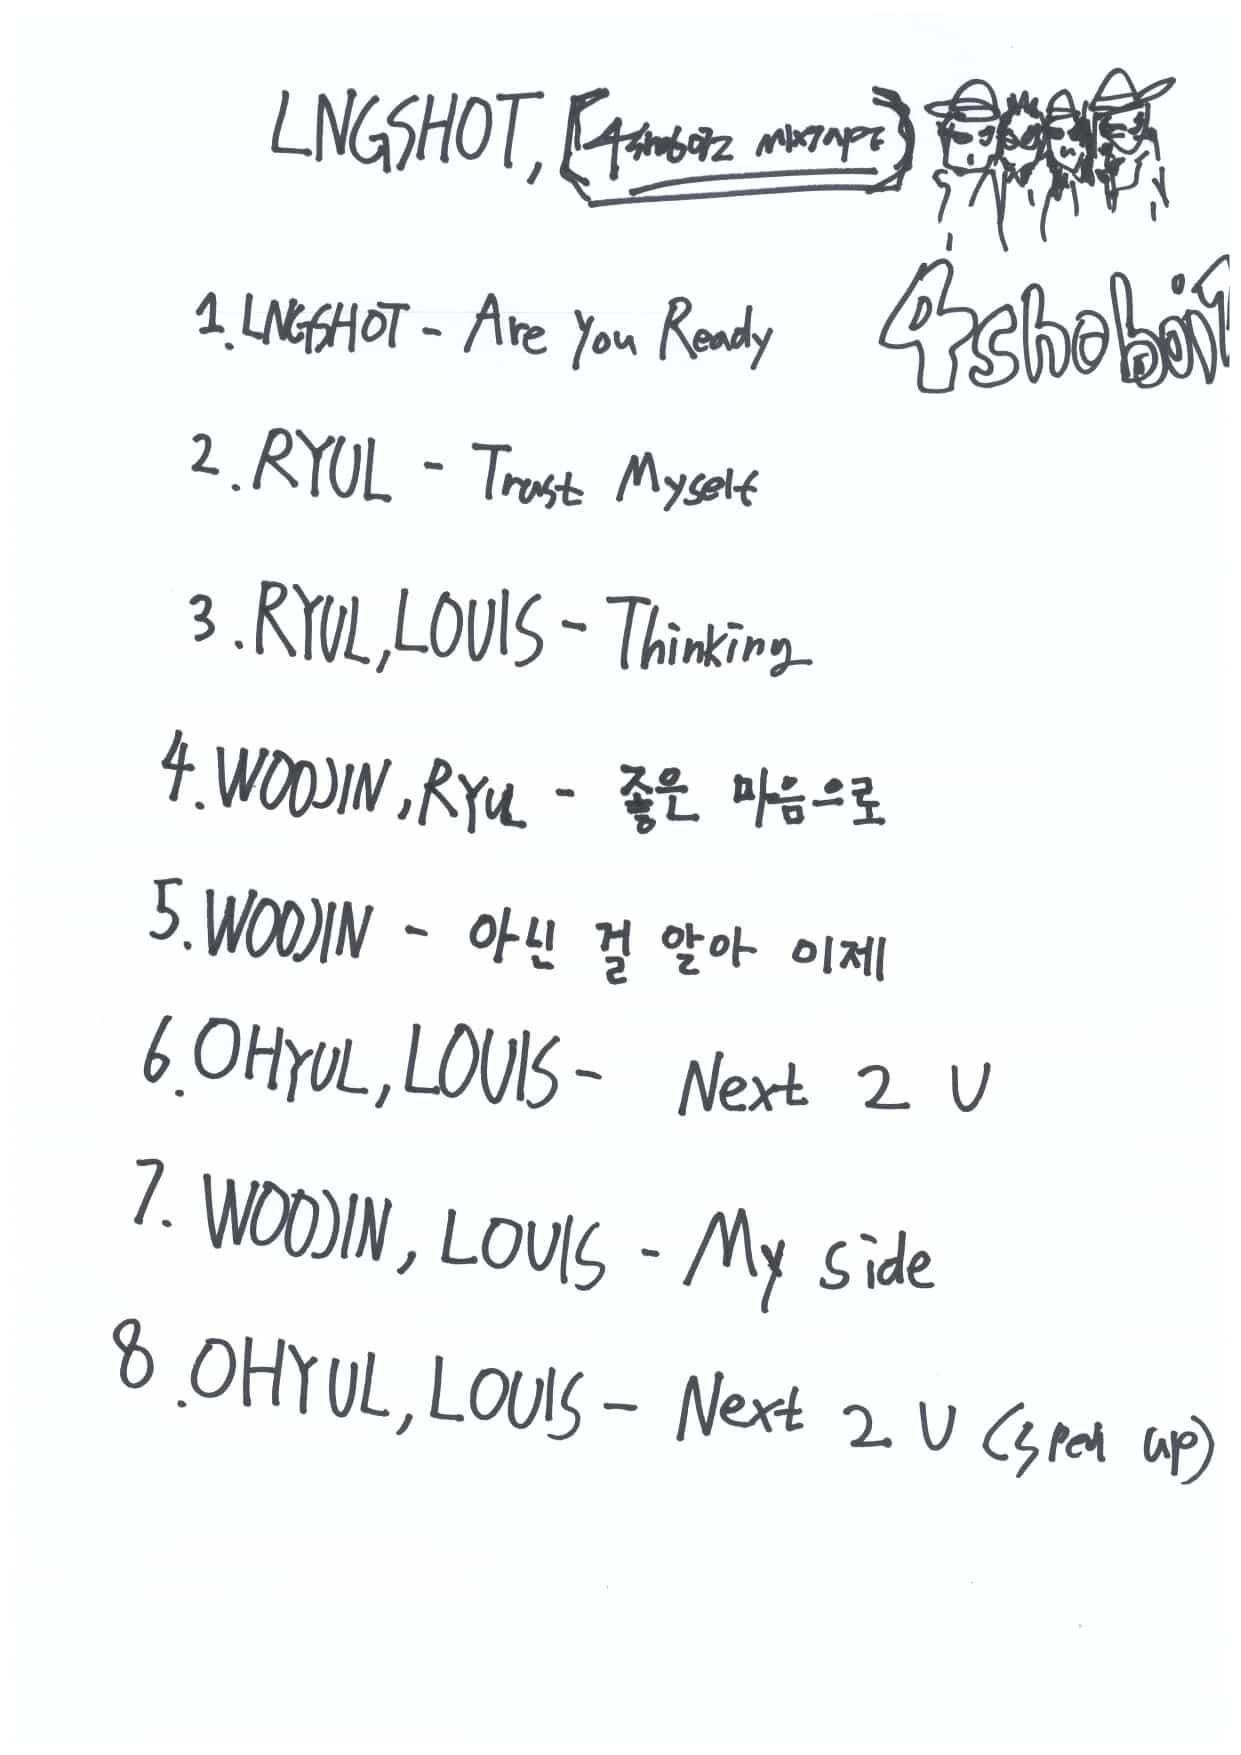 LNGSHOT, [4shoboiz mixtape]
4shoboi
1. LNGSHOT - Are You Ready
2. RYUL - Trust Myself
3. RYUL, LOUIS - Thinking
4. WOOJIN, RYUL - 좋은 마음으로
5. WOOJIN - 아닌 걸 알아 이제
6. OHYUL, LOUIS - Next 2 U
7. WOOJIN, LOUIS - My side
8. OHYUL, LOUIS - Next 2 U (sped up)